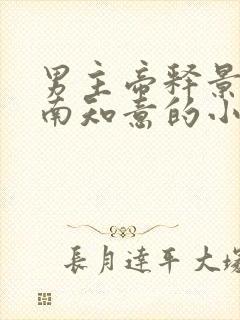 男主帝释景
南知意的小
長月達平 大塚